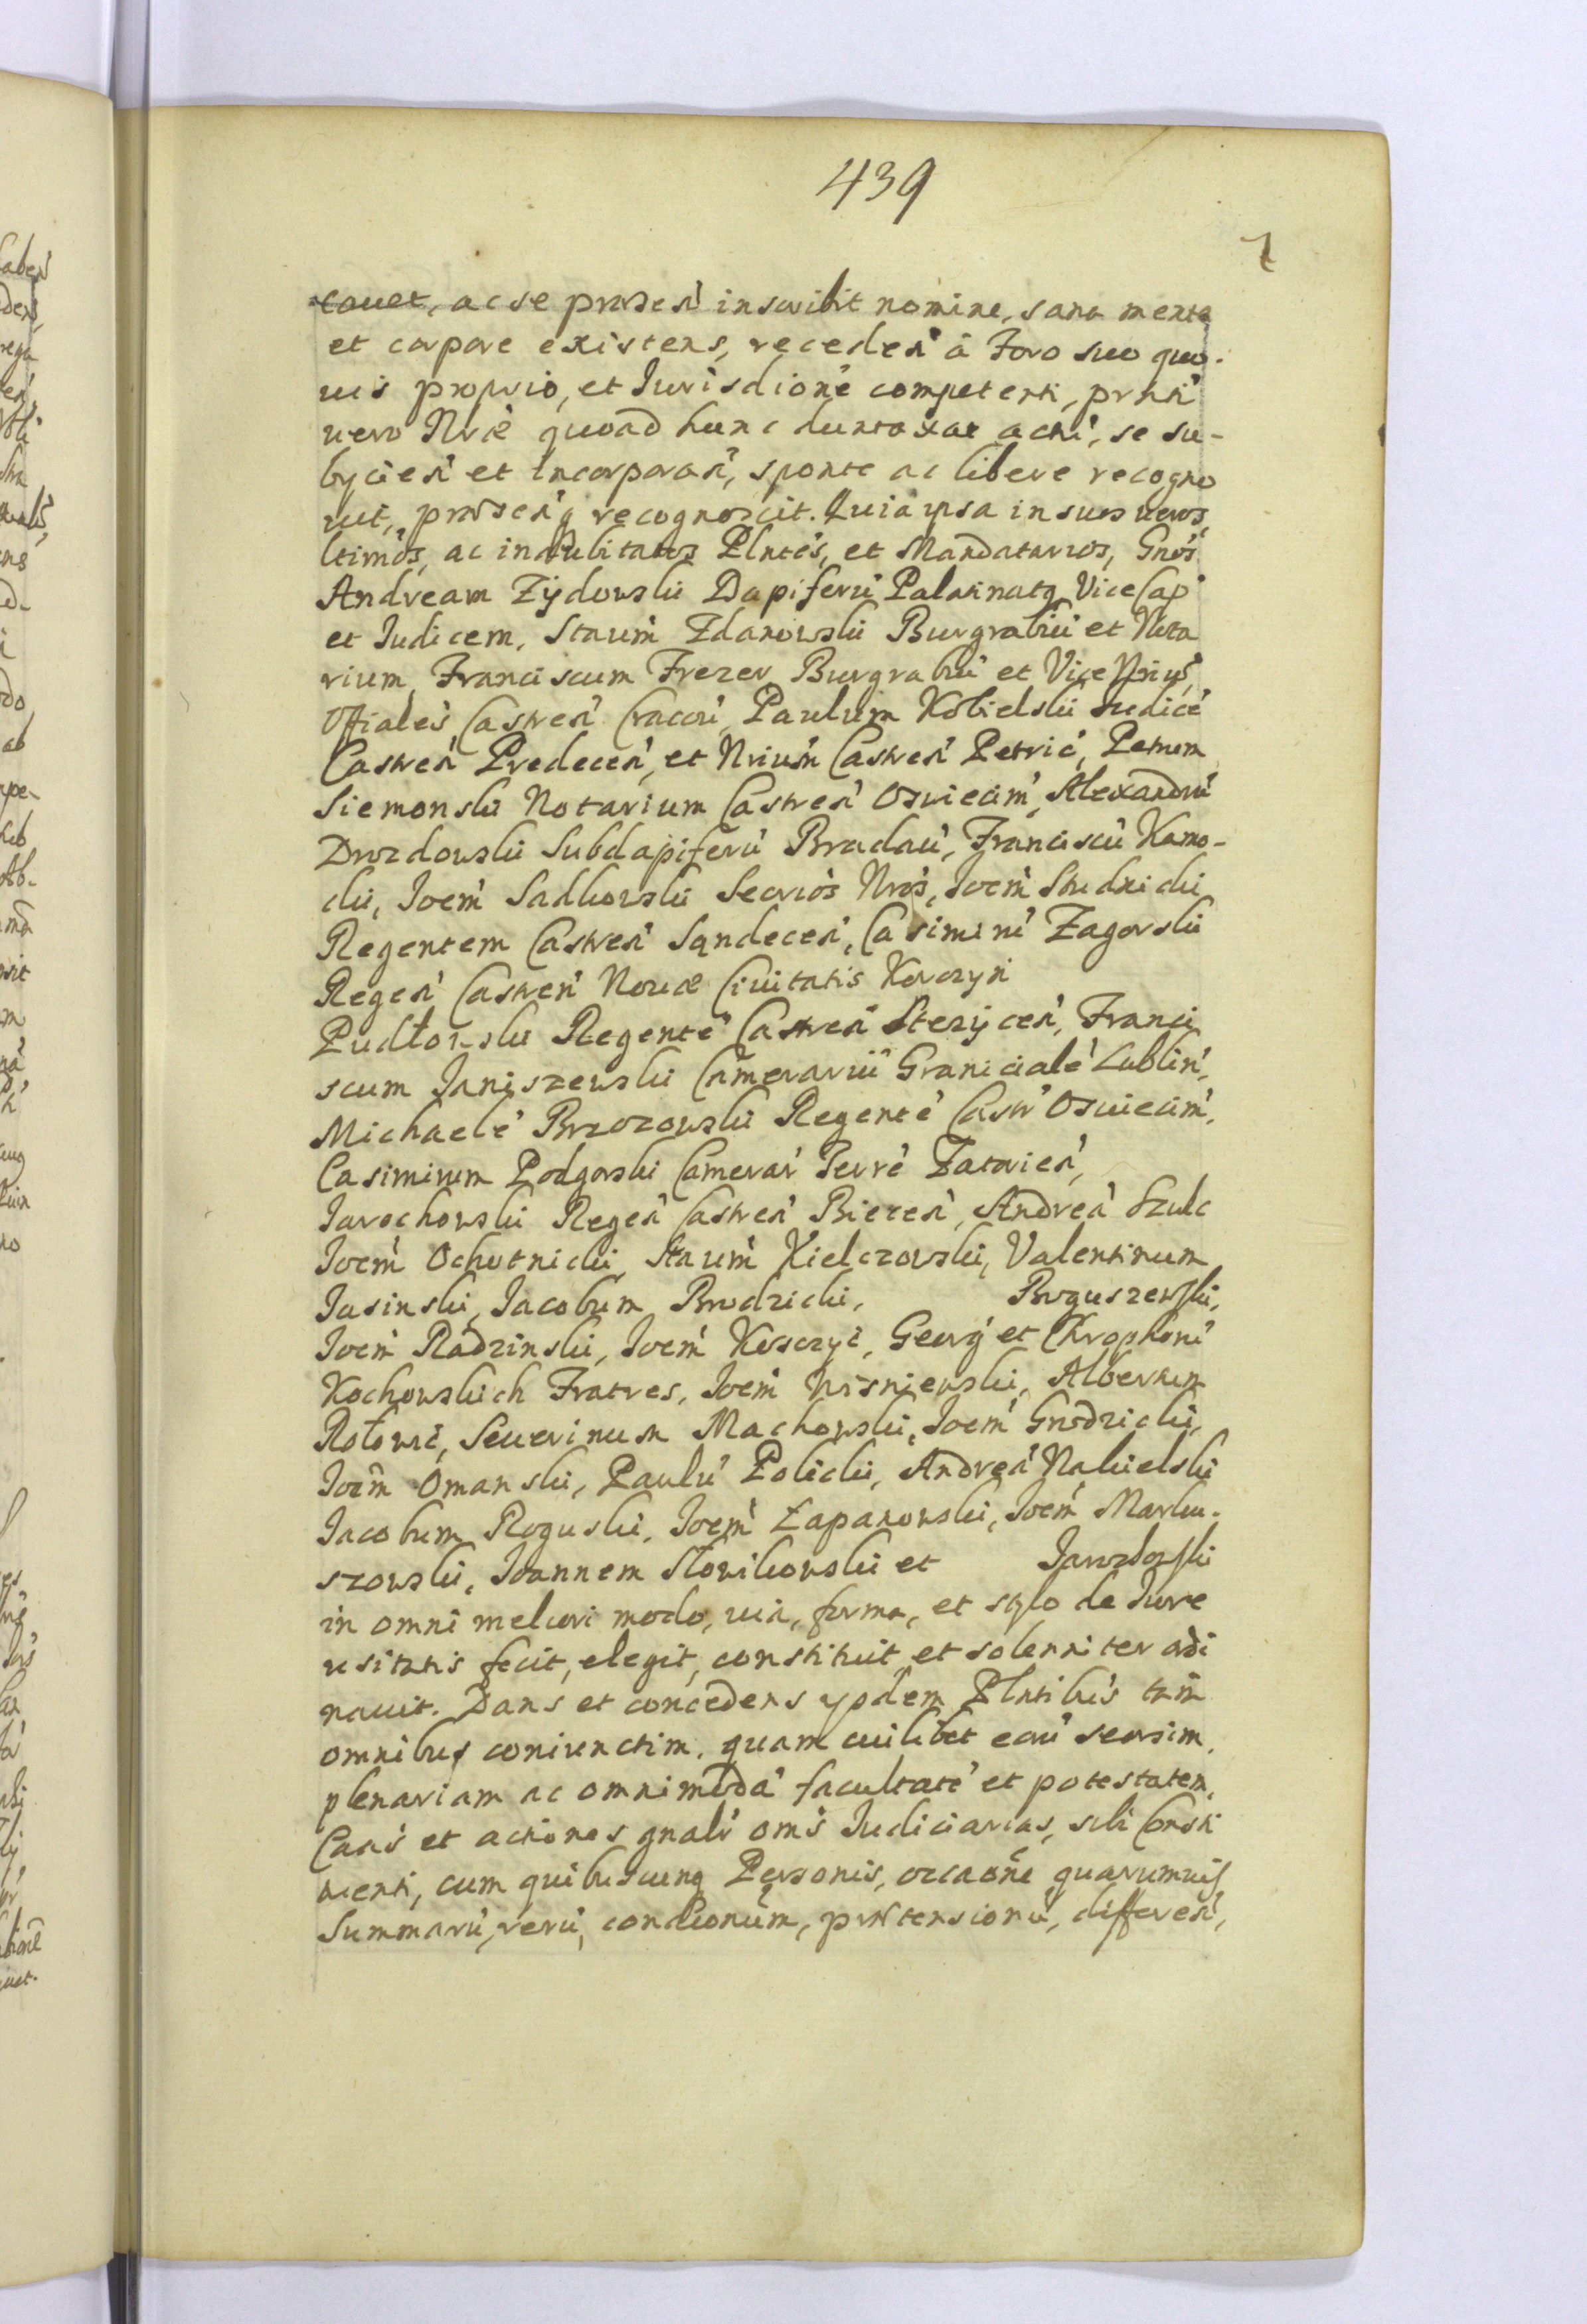 439
7
cauet, ac se praesen inscribit nomine, sana mente
et corpore existens, receden à Foro suo quo-
uis proprio, et Iurisdione competenti, prnti
uero Nrae quoad hunc duntaxat actu, se su-
byicien et Incorporan, sponte ac libere recogno
uit, praesenq recognoscit. Quia ipsa in suos ueros,
ltimos, ac indubitatos Plntes, et Mandatarios, Gnos
Andream Zydowski Dapiferu Palatinatq Vice Cap
et Iudicem, Staum Zdanowski Burgrabiu et Nota
rium, Franciscum Frezer Burgrabiu et Vice Nrius,
Offiales Castren Cracou, Paulum Kobielski Iudice
Castren Predecen, et Nrium Castren Petric, Petrum
Siemonski Notarium Castren Oswiecim, Alexandru
Drozdowski Subdapiferu Braclau, Franciscu Kamo-
cki, Ioem Sadkowski Secrios Nros, Ioem Studnicki
Regentem Castren Sandecen, Casimiru Zagorski
Regen Castren Nouae Ciuitatis Korczyn
Pudłowski Regente Castren Stezycen, Franci
scum Janiszewski Camerariu Graniciale Lublin,
Michaele Brzozowski Regente Castr Oswiecim,
Casimirum Podgorski Camerar Terre Zatorien,
Jarochowski Regen Castren Biecen, Andrea Szulc
Ioem Ochotnicki, Staum Kielczowski, Valentinum
Jasinski, Jacobum Brodzicki, Boguszewski,
Ioem Radzinski, Ioem Kosczyc, Georg et Chrophoru
Kochowskich Fratres, Ioem Wisniewski, Albertum
Rołowic, Seuerinum Machowski, Ioem Grodzicki,
Ioem Omanski, Paulu Policki, Andrea Nakielski
Jacobum Roguski, Ioem Łapanowski, Ioem Marku-
szowski, Joannem Słowikowski et Jarozłowski
in omni meliori modo, uia, forma, et stylo de Iure
usitatis fecit, elegit, constituit et solenniter ordi
nauit. Dans et concedens ypdem Plntibus tam
omnibus coniunctim, quam cuilibet eoru seorsim,
plenariam ac omnimoda facultate et potestatem,
Caas et actiones gnalr oms Iudiciarias, sibi Consti
tuenti, cum quibuscunq Personis, occaone quarumuis
Summaru, reru, condionum, praetensionu, differen,